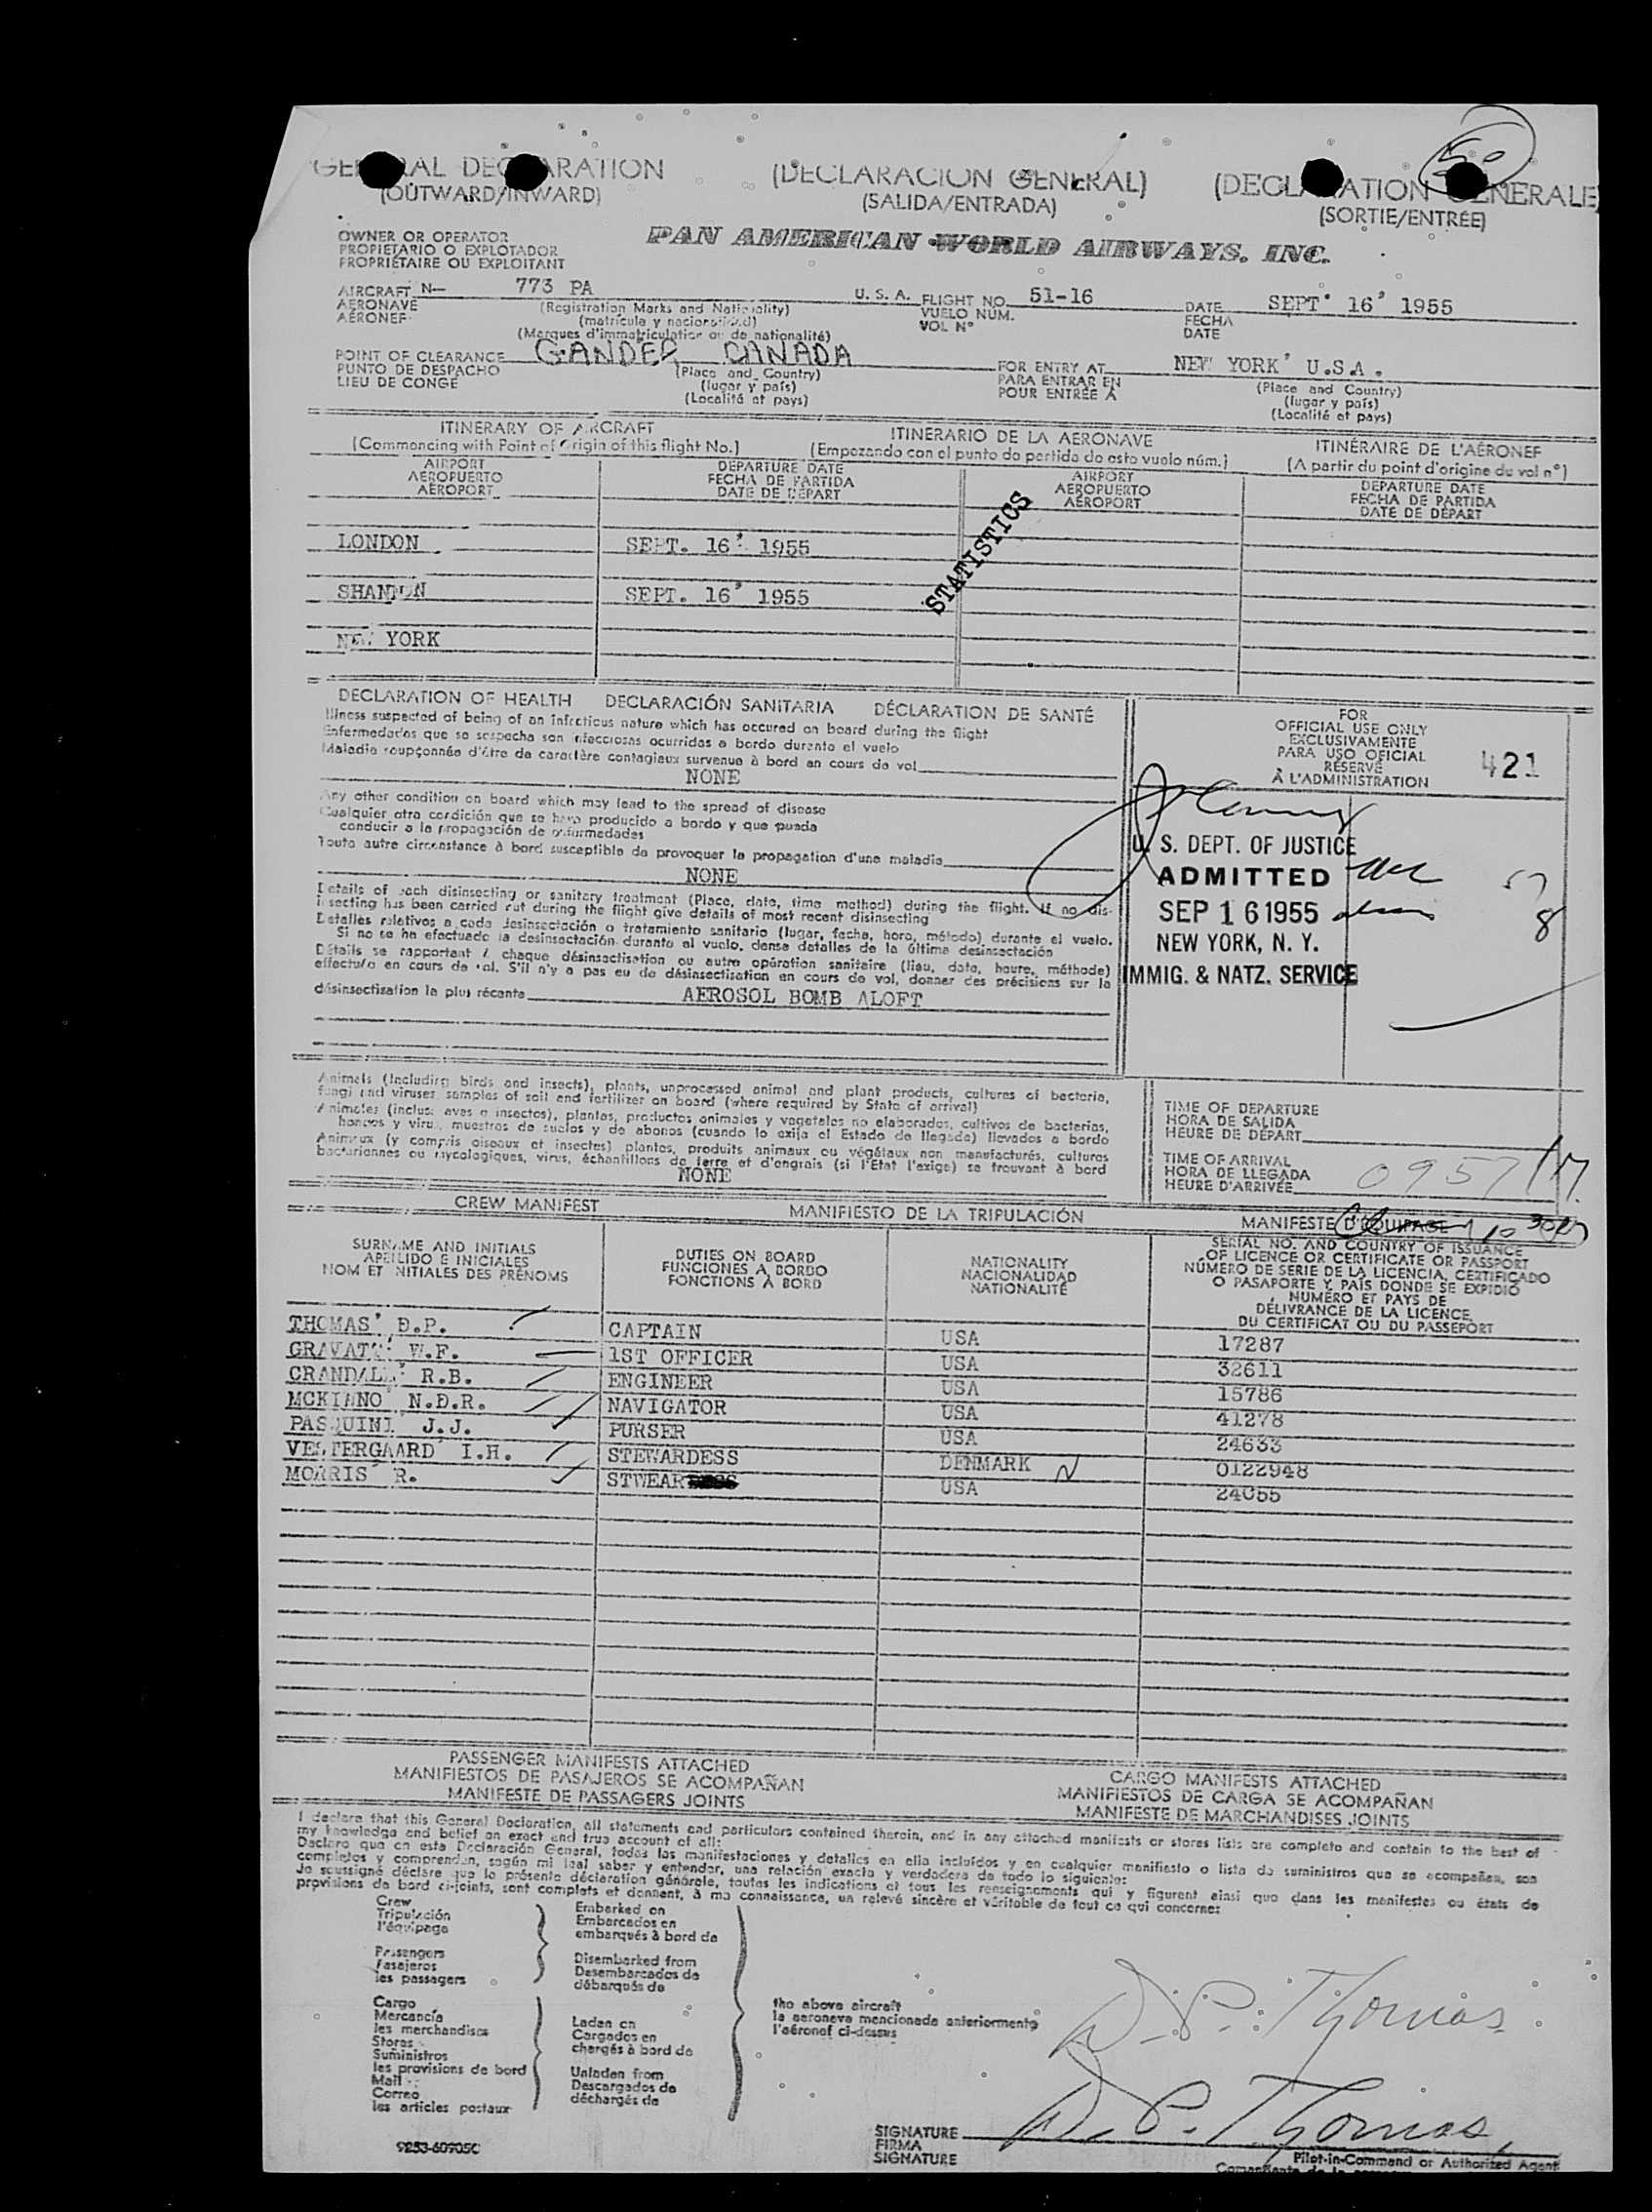 GENERAL DECLARATION (DECLARACIÓN GENERAL) (DECLARATION GENERALE)
(OUTWARD/INWARD) (SALIDA/ENTRADA) (SORTIE/ENTRÉE)
50
OWNER OR OPERATOR
PROPIETARIO O EXPLOTADOR
PROPRIÉTAIRE OU EXPLOITANT
PAN AMERICAN WORLD AIRWAYS, INC.
AIRCRAFT N— 773 PA U. S. A. FLIGHT NO. 51-16 DATE SEPT' 16' 1955
AERONAVE (Registration Marks and Nationality) VUELO NÚM. FECHA
AÉRONEF (matrícula y nacionalidad) VOL N° DATE
(Marques d'immatriculation ou de nationalité)
POINT OF CLEARANCE GANDER CANADA FOR ENTRY AT NEW YORK' U.S.A.
PUNTO DE DESPACHO (Place and Country) PARA ENTRAR EN (Place and Country)
LIEU DE CONGÉ (lugar y país) POUR ENTRÉE À (lugar y país)
(Localité et pays) (Localité et pays)
ITINERARY OF AIRCRAFT ITINERARIO DE LA AERONAVE ITINÉRAIRE DE L'AÉRONEF
(Commencing with Point of Origin of this flight No.) (Empezando con el punto de partida de este vuelo núm.) (A partir du point d'origine du vol n°)
AIRPORT DEPARTURE DATE AIRPORT DEPARTURE DATE
AEROPUERTO FECHA DE PARTIDA AEROPUERTO FECHA DE PARTIDA
AÉROPORT DATE DE DÉPART AÉROPORT DATE DE DÉPART
STATISTICS
LONDON SEPT. 16' 1955
SHANNON SEPT. 16' 1955
NEW YORK
DECLARATION OF HEALTH DECLARACIÓN SANITARIA DÉCLARATION DE SANTÉ
Illness suspected of being of an infectious nature which has occured on board during the flight
Enfermedades que se sospecha son infecciosas ocurridas a bordo durante el vuelo
Maladie soupçonnée d'être de caractère contagieux survenue à bord en cours de vol
NONE
Any other condition on board which may lead to the spread of disease
Cualquier otra condición que se haya producido a bordo y que pueda
conducir a la propagación de enfermedades
Toute autre circonstance à bord susceptible de provoquer la propagation d'une maladie
NONE
Details of each disinsecting or sanitary treatment (Place, date, time method) during the flight. If no dis-
insecting has been carried out during the flight give details of most recent disinsecting
Detalles relativos a cada desinsectación o tratamiento sanitario (lugar, fecha, hora, método) durante el vuelo.
Si no se ha efectuado la desinsectación durante el vuelo, dense detalles de la última desinsectación
Détails se rapportant à chaque désinsectisation ou autre opération sanitaire (lieu, date, heure, méthode)
effectuée en cours de vol. S'il n'y a pas eu de désinsectisation en cours de vol, donner des précisions sur la
désinsectisation la plus récente AEROSOL BOMB ALOFT
FOR
OFFICIAL USE ONLY
EXCLUSIVAMENTE
PARA USO OFICIAL
RÉSERVÉ
À L'ADMINISTRATION
421
U. S. DEPT. OF JUSTICE
ADMITTED
SEP 16 1955
NEW YORK, N. Y.
IMMIG. & NATZ. SERVICE
57
8
Animals (Including birds and insects), plants, unprocessed animal and plant products, cultures of bacteria,
fungi and viruses, samples of soil and fertilizer on board (where required by State of arrival)
Animales (incluso aves e insectos), plantas, productos animales y vegetales no elaborados, cultivos de bacterias,
hongos y virus, muestras de suelos y de abonos (cuando lo exija el Estado de llegada) llevados a bordo
Animaux (y compris oiseaux et insectes) plantes, produits animaux ou végétaux non manufacturés, cultures
bactériennes ou mycologiques, virus, échantillons de terre et d'engrais (si l'État l'exige) se trouvant à bord
NONE
TIME OF DEPARTURE
HORA DE SALIDA
HEURE DE DÉPART
TIME OF ARRIVAL
HORA DE LLEGADA
HEURE D'ARRIVÉE 0957
CREW MANIFEST MANIFIESTO DE LA TRIPULACIÓN MANIFESTE D'ÉQUIPAGE
SURNAME AND INITIALS
APELLIDO E INICIALES
NOM ET INITIALES DES PRÉNOMS
DUTIES ON BOARD
FUNCIONES A BORDO
FONCTIONS À BORD
NATIONALITY
NACIONALIDAD
NATIONALITÉ
SERIAL NO. AND COUNTRY OF ISSUANCE
OF LICENCE OR CERTIFICATE OR PASSPORT
NÚMERO DE SERIE DE LA LICENCIA, CERTIFICADO
O PASAPORTE Y PAÍS DONDE SE EXPIDIÓ
NUMÉRO ET PAYS DE
DÉLIVRANCE DE LA LICENCE,
DU CERTIFICAT OU DU PASSEPORT
THOMAS' D.P. CAPTAIN USA 17287
GRAVATT' W.F. 1ST OFFICER USA 32611
CRANDALL' R.B. ENGINEER USA 15786
N.D.R. NAVIGATOR USA 41278
PASQUINI J.J. PURSER USA 24633
VESTERGAARD' I.H. STEWARDESS DENMARK 0122948
MORRIS' R. STWEAR USA 24055
PASSENGER MANIFESTS ATTACHED CARGO MANIFESTS ATTACHED
MANIFIESTOS DE PASAJEROS SE ACOMPAÑAN MANIFIESTOS DE CARGA SE ACOMPAÑAN
MANIFESTE DE PASSAGERS JOINTS MANIFESTE DE MARCHANDISES JOINTS
I declare that this General Declaration, all statements and particulars contained therein, and in any attached manifests or stores lists are complete and contain to the best of
my knowledge and belief an exact and true account of all:
Declaro que en esta Declaración General, todas las manifestaciones y detalles en ella incluídos y en cualquier manifiesto o lista de suministros que se acompañen, son
completos y comprenden, según mi leal saber y entender, una relación exacta y verdadera de todo lo siguiente:
Je soussigné déclare que la présente déclaration générale, toutes les indications et tous les renseignements qui y figurent ainsi que dans les manifestes ou états de
provisions de bord ci-joints, sont complets et donnent, à ma connaissance, un relevé sincère et véritable de tout ce qui concerne:
Crew
Tripulación
l'équipage
Passengers
Pasajeros
les passagers
Embarked on
Embarcados en
embarqués à bord de
Disembarked from
Desembarcados de
débarqués de
Cargo
Mercancía
les merchandises
Stores
Suministros
les provisions de bord
Mail
Correo
les articles postaux
Laden on
Cargados en
chargés à bord de
Unladen from
Descargados de
déchargés de
the above aircraft
la aeronave mencionada anteriormente
l'aéronef ci-dessus
D.P. Thomas
D.P. Thomas
SIGNATURE
FIRMA
SIGNATURE
Pilot-in-Command or Authorized Agent
9253-60905C